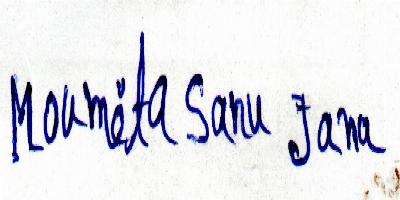 Moumita Sanu Jana